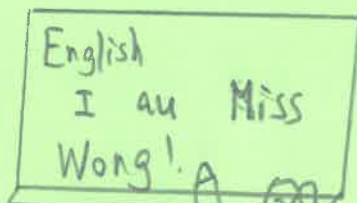 English
I au Miss
Wong!